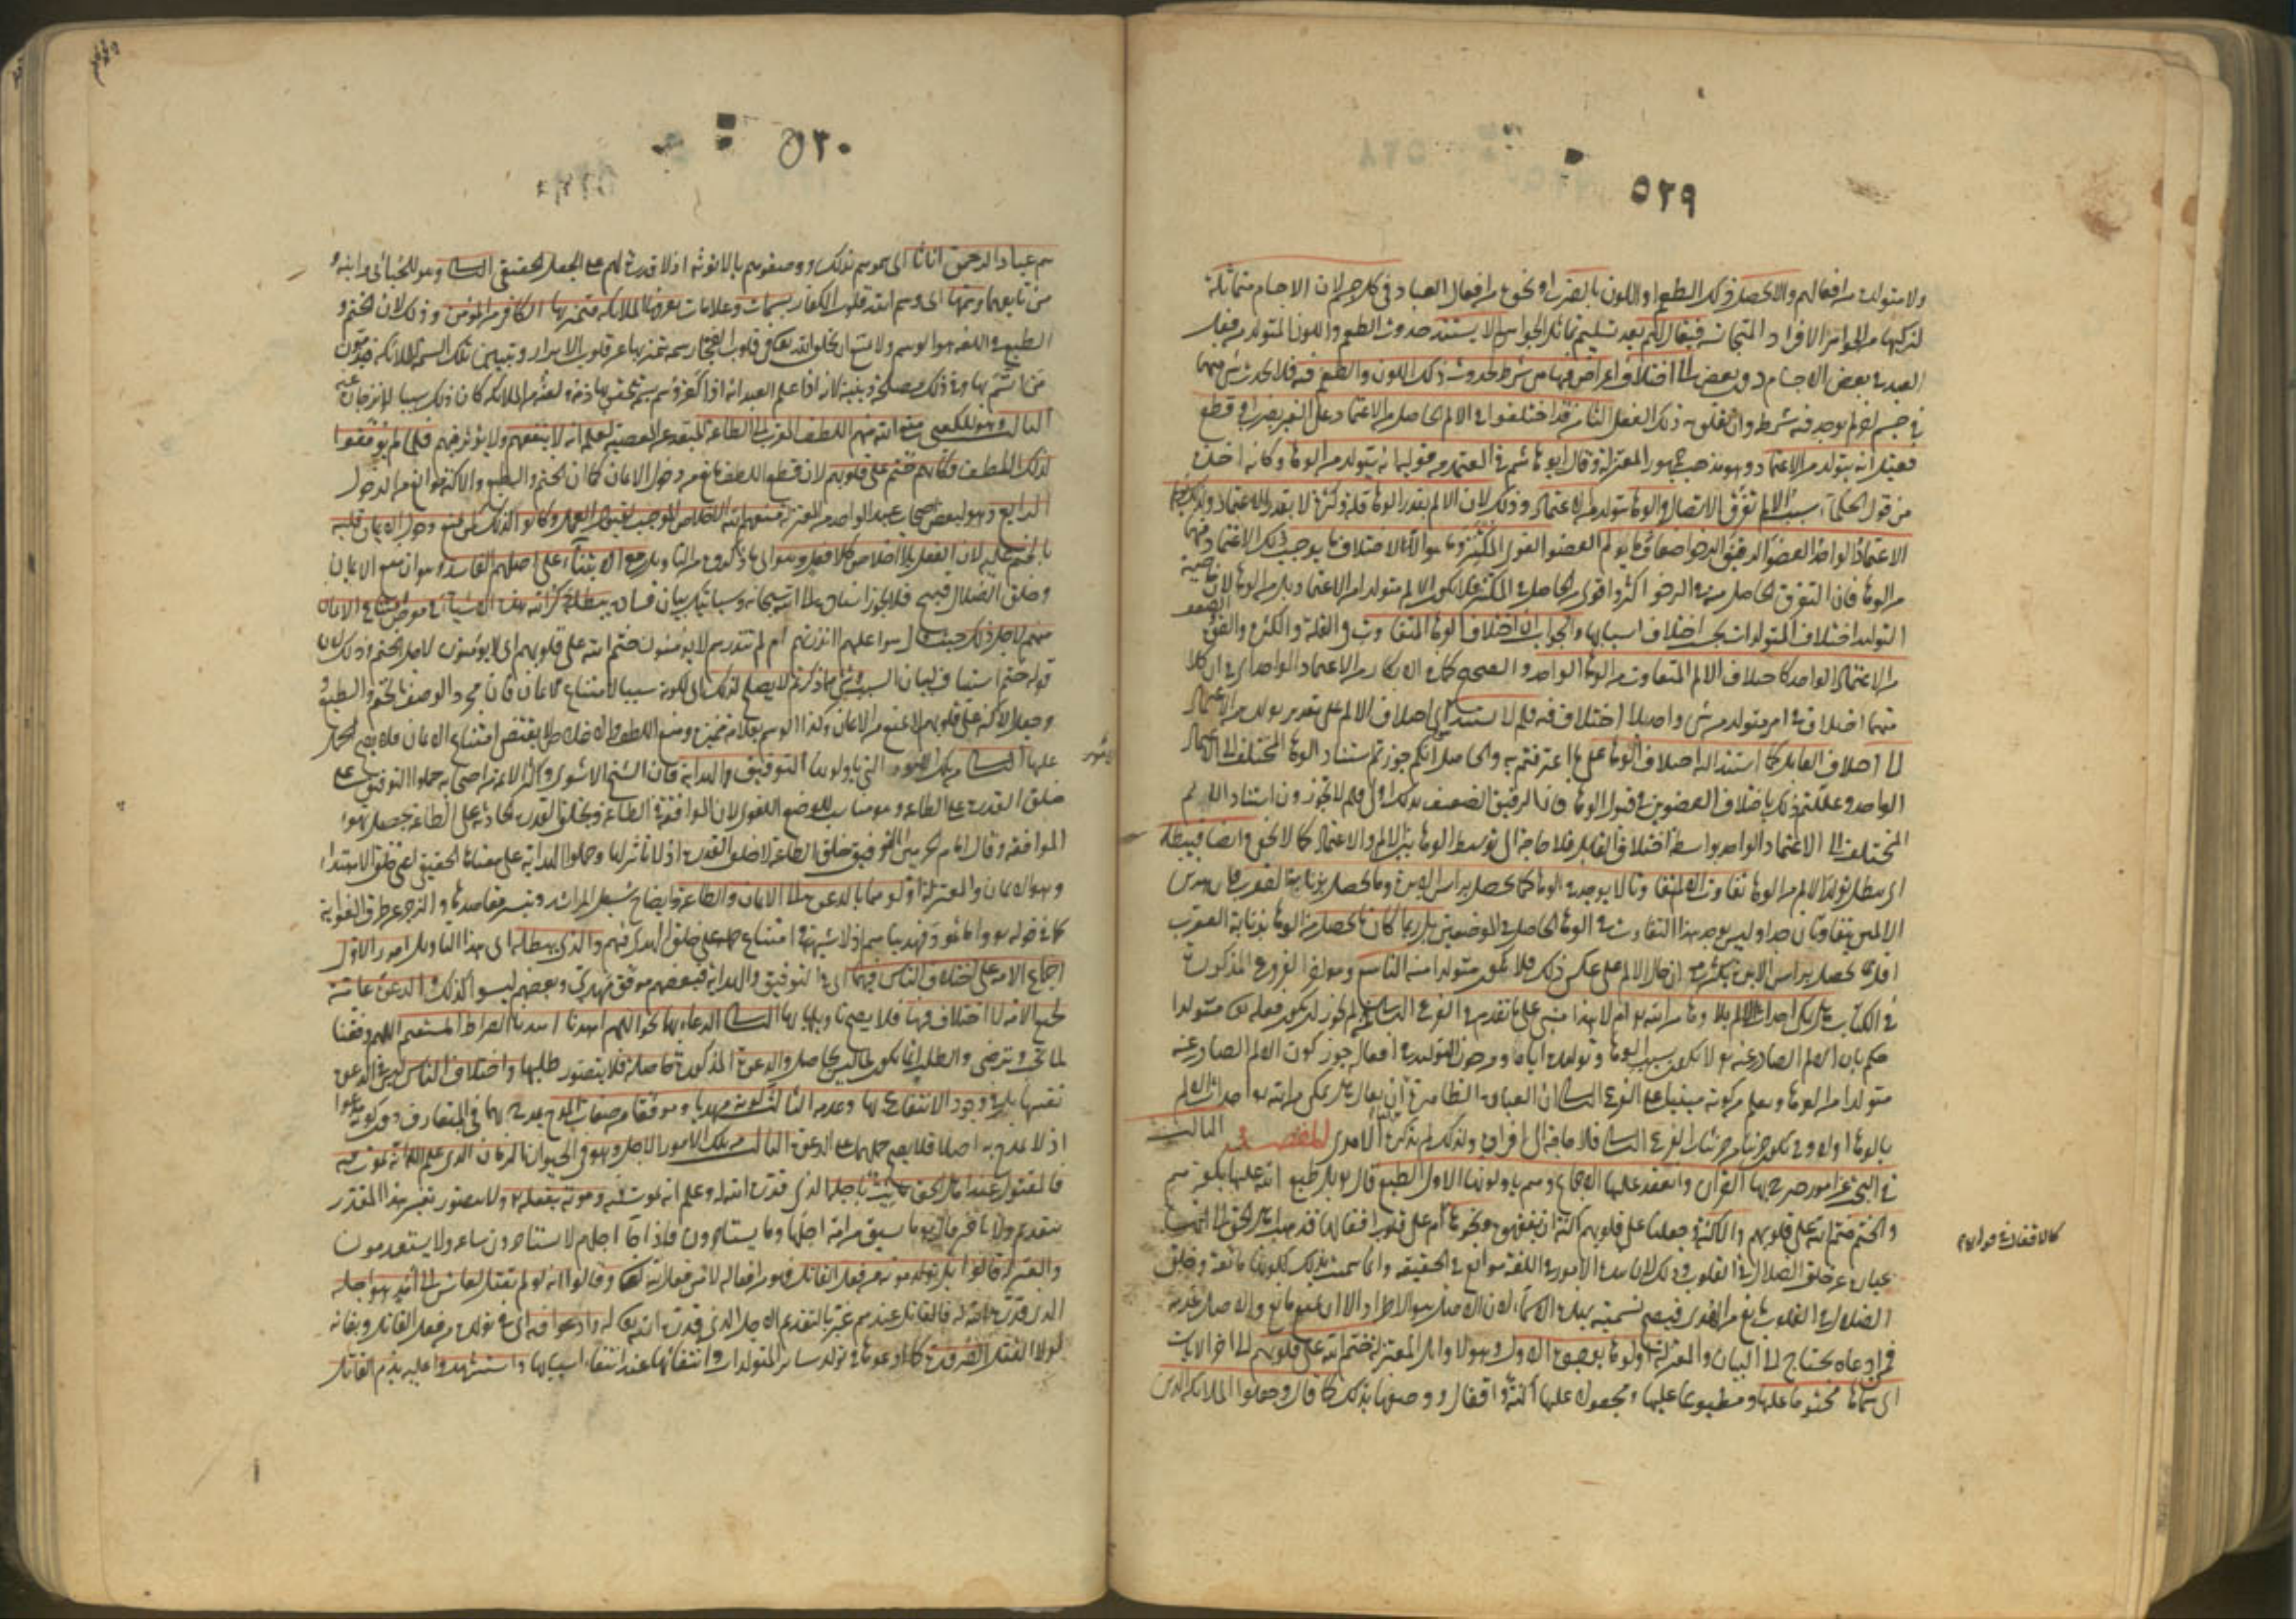 ٥٢٩
ولا متولدا من افعالهم والا لحصل ذلك الطعم او اللون بالضرب او نحوه من افعال العباد في كل جسم لان الاجسام متماثلة
لتركبها من الجواهر الافراد المتجانسة فيقال لهم بعد تسليم تماثل الجواهر لم لا يستند حدوث الطعم واللون المتولد من فعل
العبد في بعض الاجسام دون بعض الى اختلاف اعراض فيها هي شرط لحدوث ذلك اللون والطعم فيه فلا يحدث شئ منهما
في جسم لم يوجد فيه شرطه وان تعلق به ذلك الفعل الثامن قد اختلفوا في الالم الحاصل من الاعتماد على الغير بضرب او قطع
فقيل انه يتولد من الاعتماد وهو مذهب جمهور المعتزلة وقال ابو هاشم في المعتمد من قوليه انه يتولد من الوها وكانه اخذه
من قول الحكماء سبب الالم تفرق الاتصال والوها متولد من الاعتماد وذلك لان الالم بقدر الوها قلة وكثرة لا بقدر الاعتماد ولذلك
الاعتماد الواحد العضو الرقيق الرخو اضعاف ما يؤلم العضو القوى المكتنز وما هو الا لاختلاف ما يوجب ذلك الاعتماد فيهما
من الوها فان التفرق الحاصل منه في الرخو اكثر واقوى من الحاصل في المكتنز فلا يكون الالم متولدا من الاعتماد بل من الوها لان خاصية
التوليد اختلاف المتولدات بحسب اختلاف اسبابها والجواب ان اختلاف الوها المتفاوت في القلة والكثرة والضعف
من الاعتماد الواحد كاختلاف الالم المتفاوت من الوها الواحد والصحيح كما من الاعتماد الواحد اى ان كلا
منهما اختلاف في امر متولد من شئ واحد بلا اختلاف فيه فلم لا يستند اى اختلاف الالم على تقدير تولده من الاعتماد
لها اختلاف القابل كما استند اليه اختلاف الوها على ما اعترفتم به والحاصل انكم جوزتم استناد الوها المختلف الى الاعتماد
الواحد وعللتم ذلك باختلاف العضوين في قبول الوها فان الرقيق الضعيف بذلك اولى فلم لا تجوزون استناد الالم
المختلف الى الاعتماد الواحد بواسطة اختلاف القابل فلا حاجة الى توسط الوها بين الالم والاعتماد كما لا يخفى وايضا فيبطله
اى يبطل تولد الالم من الوها تفاوت الالم تفاوتا لا يوجد في الوها كما يحصل برأس الابرة وما يحصل بذنابة العقرب فان هذين
الالمين يتفاوتان جدا وليس يوجد هذا التفاوت في الوها الحاصل في الموضعين بل ربما كان ما يحصل من الوها بذنابة العقرب
اقل مما يحصل برأس الابرة بكثير مع ان حال الالم على عكس ذلك فلا يكون متولدا منه التاسع وهو اخر الفروع المذكورة
في الكتاب هل يمكن احداث الالم بلا وها من الله تع ام لا وهذا مبنى على ما تقدم في الفرع السابع فمن لم يجوز ان يكون فعله تع متولدا
حكم بان الالم الصادر عنه تع لا يكون بسبب الوها وتوليده اياه ومن جوز التوليد في افعاله جوز كون الالم الصادر عنه
متولدا من الوها ويعلم من كونه مبنيا على الفرع السابع ان العبارة الظاهرة ان يقال هل يمكن من الله تع احداث الالم
بالوها اولا وحـ يكون جزئيا من جزئيات الفرع السابع فلا حاجة الى افراده ولذلك لم يذكره الآمدى المقصد الثالث
في البحث عن امور صرح بها القرآن وانعقد عليها الاجماع وهم يأولونها الاول الطبع قال تع بل طبع الله عليها بكفرهم
والختم ختم الله على قلوبهم والاكنة وجعلنا على قلوبهم اكنة ان يفقهوه ونحوها ام على قلوب اقفالها فذهب اهل الحق الى انها
عبارة عن خلق الضلال في القلوب وذلك لان هذه الامور في اللغة موانع في الحقيقة وانما سميت بذلك لكونها مانعة وخلق
الضلال في القلوب مانع من الهدى فيصح تسميته بهذه الاسماء لان الاصل هو الاطراد الا ان يمنع مانع والاصل عدمه
فمن ادعاه يحتاج الى البيان والمعتزلة اولوها بوجوه الاول وهو لاوائل المعتزلة ختم الله على قلوبهم الى اخر الايات
اى سماها مختوما عليها ومطبوعا عليها ومجعولة عليها اكنة واقفال ووصفها بذلك كما قال وجعلوا الملائكة الذين
كالاقفال في قوله
٥٣٠
هم عباد الرحمن اناثا اى سموهم بذلك ووصفوهم بالانوثة اذ لا قدرة لهم على الجعل الحقيقى الثانى وهو للجبائى وابنه و
من تابعهما وسمها اى وسم الله قلوب الكفار بسمات وعلامات تعرفها الملائكة فتتميز بها الكافر من المؤمن وذلك لان الختم و
الطبع في اللغة هو الوسم ولا يمتنع ان يخلق الله تعـ في قلوب الفجار سمة تتميز بها عن قلوب الابرار ويتبين تلك السمة للملائكة
من اتسم بها وفي ذلك مصلحة دينية لانه اذا علم العبد انه اذا كفر وسم بسمة تحقق بها ذمه ولعنه من الملائكة كان ذلك سببا لانزجاره عنه
الثالث وهو للكعبى منع الله منهم اللطف المقرب الى الطاعة المبعد عن المعصية لعلمه انه لا ينفعهم ولا يؤثر فيهم فلما لم يوفقوا
لذلك اللطف فكأنه ختم على قلوبهم لان قطع اللطف مانع من دخول الايمان كما ان الختم والطبع والاكنة موانع من الدخول
الرابع وهو لبعض اصحاب عبد الواحد من المعتزلة منعهم الله الاخلاص الموجب لقبول العمل وكانوا لذلك كمن منع دخول الايمان قلبه
بالختم عليه لان الفعل بلا اخلاص كلا فعل وهو اى ما ذكروه من التأويل مع الابتناء على اصلهم الفاسد وهو ان منع الايمان
وخلق الضلال قبيح فلا يجوز اسناده الى الله سبحانه وسيأتيك بيان فساده يبطله ذكر الله هذه الاشياء في معرض امتناع الايمان
منهم لاجل ذلك حيث قال سواء عليهم أأنذرتهم ام لم تنذرهم لا يؤمنون ختم الله على قلوبهم اى لا يؤمنون لاجل الختم وذلك لان
قوله ختم استيناف لبيان السبب وشئ مما ذكرتم لا يصلح لذلك اى لكونه سببا لامتناع الايمان فان مجرد الوصف بالختم والطبع و
وجعل الاكنة على قلوبهم لا يمنع من الايمان وكذا الوسم بعلامة مميزة ومنع اللطف والاخلاص لا يقتضى امتناع الايمان فلا يصح الحمل
عليها الثانى من تلك الامور التى يأولونها التوفيق والهداية فان الشيخ الاشعرى واكثر الائمة من اصحابه حملوا التوفيق على
خلق القدرة على الطاعة وهو مناسب للوضع اللغوى لان الموافقة في الطاعة وبخلق القدرة الحادثة على الطاعة يحصل تهيؤ
الموافقة وقال امام الحرمين التوفيق خلق الطاعة لا خلق القدرة اذ لا تأثير لها وحملوا الهداية على معناها الحقيقى اعنى خلق الاهتداء
وهو الايمان والمعتزلة اولوهما بالدعوة الى الايمان والطاعة وايضاح سبل المراشد وتيسير مقاصدها والزجر عن طرق الغواية
كما في قوله تع واما ثمود فهديناهم اذ لا شبهة في امتناع حمله على خلق الهدى فيهم والذى يبطله اى هذا التأويل امور الاول
اجماع الامة على اختلاف الناس فيهما اى في التوفيق والهداية فبعضهم موفق مهدى وبعضهم ليسوا كذلك والدعوة عامة
لجميع الامة لا اختلاف فيها فلا يصح تأويلهما بها الثانى الدعاء بهما نحو اللهم اهدنا الصراط المستقيم اللهم وفقنا
لما تحب وترضى والطلب انما يكون لما ليس بحاصل والدعوة المذكورة حاصلة فلا يتصور طلبها واختلاف الناس ليس في الدعوة
نفسها بل في وجود الانتفاع بها وعدمه الثالث كونه مهديا وموفقا من صفات المدح يمدح بهما في المتعارف دون كونه مدعوا
اذ لا يمدح به اصلا فلا يصح حملهما على الدعوة الثالث من تلك الامور الاجل وهو في الحيوان الزمان الذى علم الله انه يموت فيه
فالمقتول عند اهل الحق ميت باجله الذى قدره الله له وعلم انه يموت فيه وموته بفعله تع ولا يتصور تغير هذا المقدر
بتقدم ولا تأخر قال تع ما تسبق من امة اجلها وما يستأخرون فاذا جاء اجلهم لا يستأخرون ساعة ولا يستقدمون
والمعتزلة قالوا بل تولد موته من فعل القاتل فهو من افعاله لا من فعل الله تعالى وقالوا انه لو لم يقتل لعاش الى امد هو اجله
الذى قدره الله له فالقاتل عندهم غير بالتقديم الاجل الذى قدره الله تعـ له وادعوا فيه اى في تولده من فعل القاتل وبقائه
لولا القتل الضرورة كما ادعوها في تولد سائر المتولدات وانتفائها عند انتفاء اسبابها واستشهدوا عليه بذم القاتل